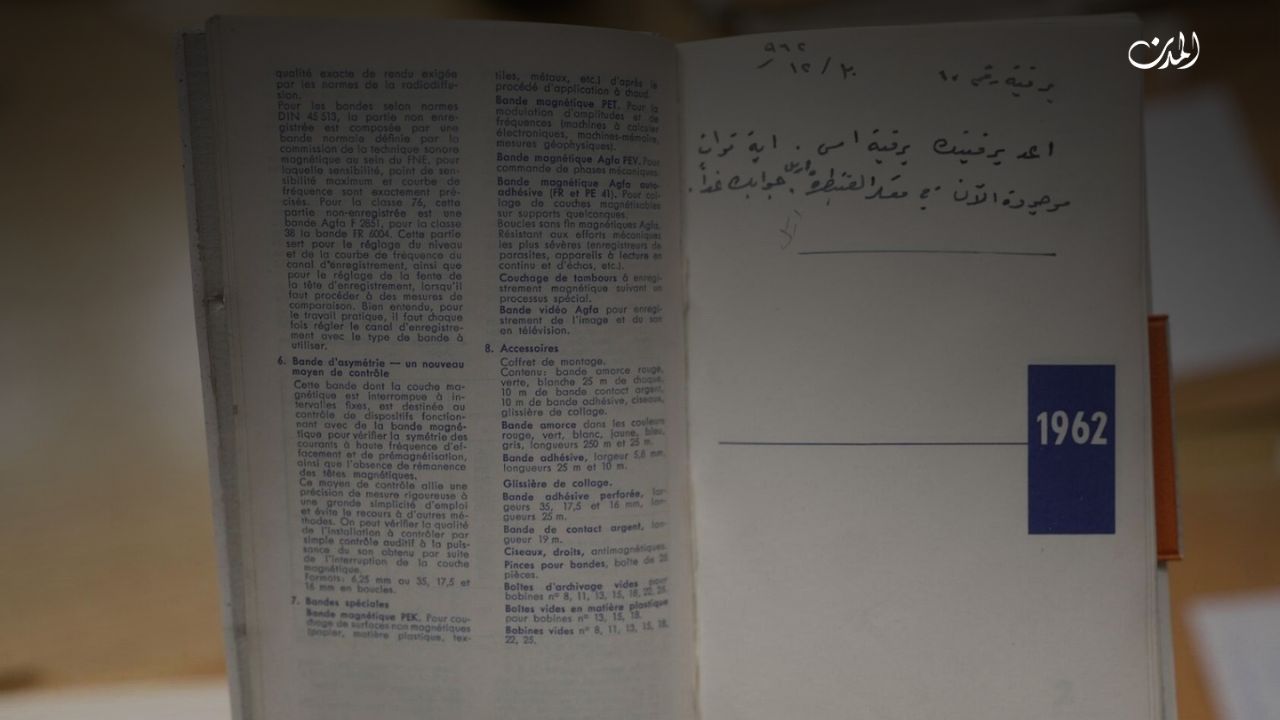 qualité exacte de rendu exigée
par les normes de la radiodiffu-
sion.
Pour les bandes selon normes
DIN 45 513, la partie non enre-
gistrée est composée par une
bande normale définie par la
commission de la technique sonore
magnétique au sein du FNE, pour
laquelle sensibilité, point de sen-
sibilité maximum et courbe de
fréquence sont exactement pré-
cisés. Pour la classe 76, cette
partie non-enregistrée est une
bande Agfa F 2851, pour la classe
38 la bande FR 6004. Cette partie
sert pour le réglage du niveau
et de la courbe de fréquence du
canal d'enregistrement, ainsi que
pour le réglage de la fente de
la tête d'enregistrement, lorsqu'il
faut procéder à des mesures de
comparaison. Bien entendu, pour
le travail pratique, il faut chaque
fois régler le canal d'enregistre-
ment avec le type de bande à
utiliser.
6. Bande d'asymétrie — un nouveau
moyen de contrôle
Cette bande dont la couche ma-
gnétique est interrompue à in-
tervalles fixes, est destinée au
contrôle de dispositifs fonction-
nant avec de la bande magné-
tique pour vérifier la symétrie des
courants à haute fréquence d'ef-
facement et de prémagnétisation,
ainsi que l'absence de rémanence
des têtes magnétiques.
Ce moyen de contrôle allie une
précision de mesure rigoureuse à
une grande simplicité d'emploi
et évite le recours à d'autres mé-
thodes. On peut vérifier la qualité
de l'installation à contrôler par
simple contrôle auditif à la puis-
sance du son obtenu par suite
de l'interruption de la couche
magnétique.
Formats: 6,25 mm ou 35, 17,5 et
16 mm en boucles.
7. Bandes spéciales
Bande magnétique PEK. Pour cou-
chage de surfaces non magnétiques
(papier, matière plastique, tex-
tiles, métaux, etc.) d'après le
procédé d'application à chaud.
Bande magnétique PET. Pour la
modulation d'amplitudes et de
fréquences (machines à calculer
électroniques, machines-mémoire,
mesures géophysiques).
Bande magnétique Agfa PEV. Pour
commande de phases mécaniques.
Bande magnétique Agfa auto-
adhésive (FR et PE 41). Pour col-
lage de couches magnétisables
sur supports quelconques.
Boucles sans fin magnétiques Agfa.
Résistant aux efforts mécaniques
les plus sévères (enregistreurs de
parasites, appareils à lecture en
continu et d'échos, etc.).
Couchage de tambours à enregi-
strement magnétique suivant un
processus spécial.
Bande vidéo Agfa pour enregi-
strement de l'image et du son
en télévision.
8. Accessoires
Coffret de montage.
Contenu: bande amorce rouge,
verte, blanche 25 m de chaque,
10 m de bande contact argent,
10 m de bande adhésive, ciseaux,
glissière de collage.
Bande amorce dans les couleurs
rouge, vert, blanc, jaune, bleu,
gris, longueurs 250 m et 25 m.
Bande adhésive, largeur 5,8 mm,
longueurs 25 m et 10 m.
Glissière de collage.
Bande adhésive perforée, lar-
geurs 35, 17,5 et 16 mm, lon-
gueurs 25 m.
Bande de contact argent, lon-
gueur 19 m.
Ciseaux, droits, antimagnétiques.
Pinces pour bandes, boîte de 25
pièces.
Boîtes d'archivage vides pour
bobines n° 8, 11, 13, 15, 18, 22, 25.
Boîtes vides en matière plastique
pour bobines n° 13, 15, 18.
Bobines vides n° 8, 11, 13, 15, 18,
22, 25.
المدن
٩٦٢
برقية رقم ١٢ / ٢٠
اعد برقيتك برقية امس . اية قوات
موجودة الآن في معسكر القنيطرة . جوابك غداً .
1962